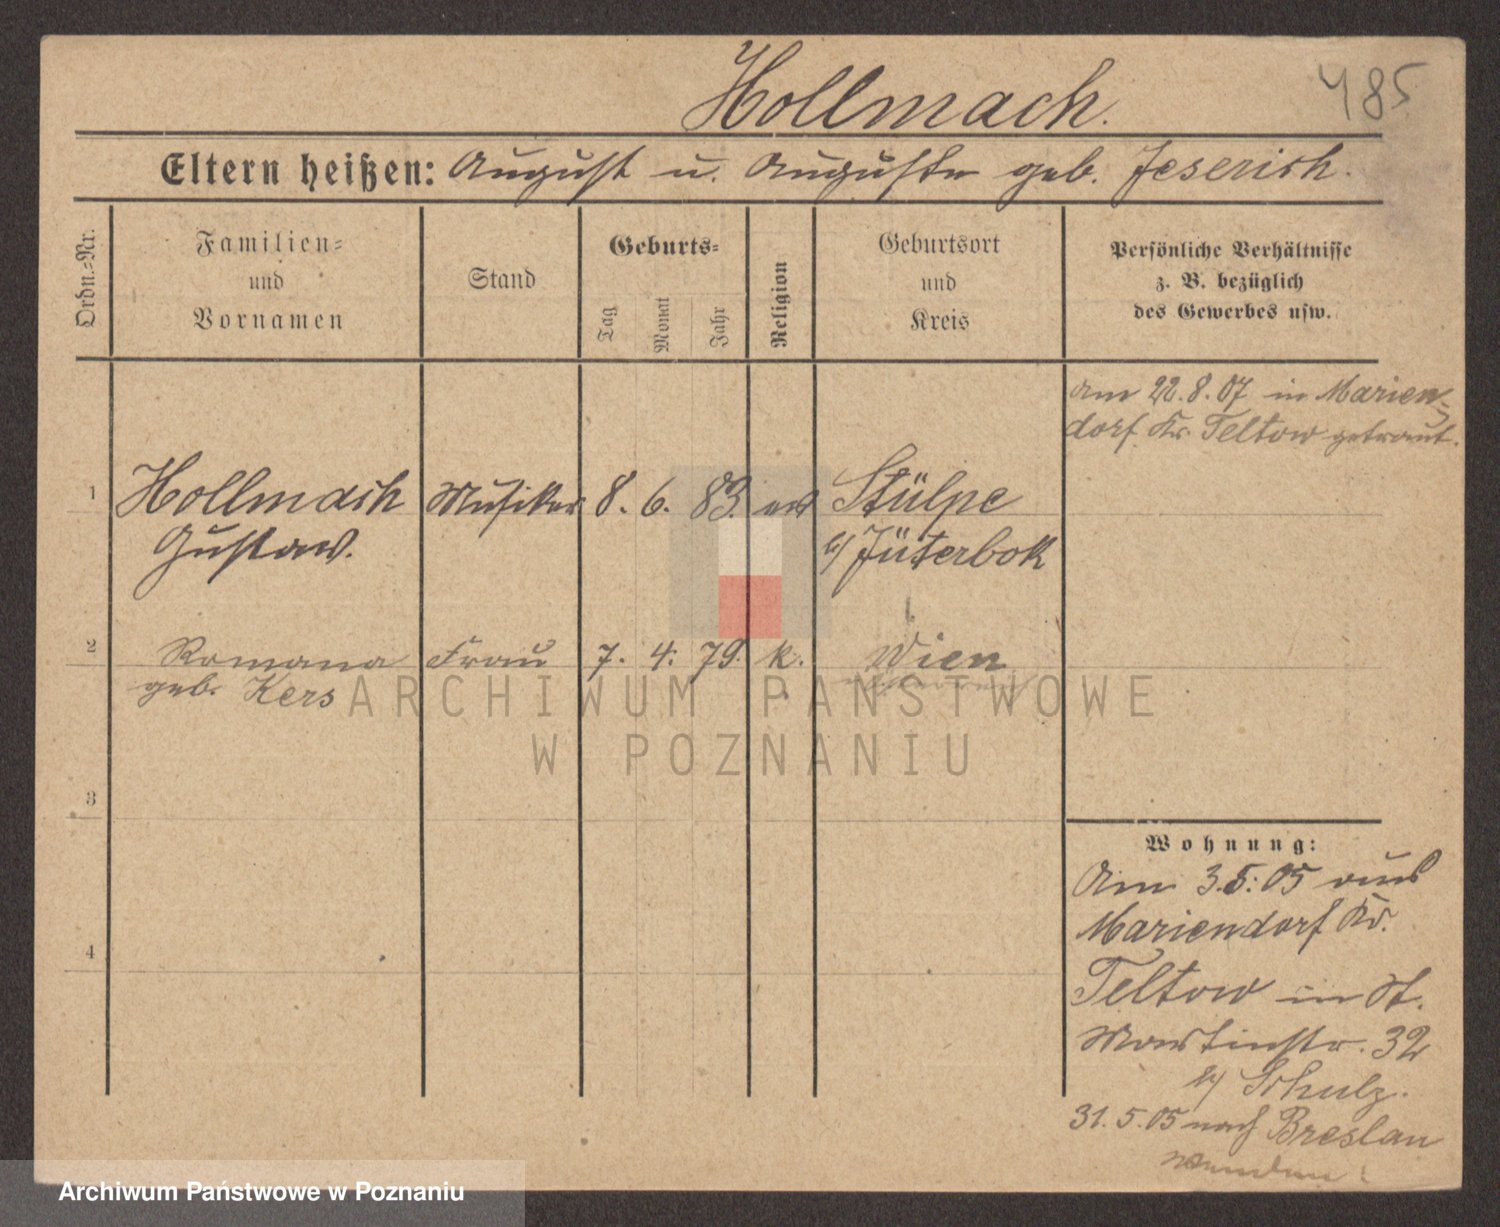 Hollmach.
485
Eltern heißen: August u. Auguste geb. Jeserich.
Ordn.-Nr.
Familien-
und
Vornamen
Stand
Geburts-
Tag
Monat
Jahr
Religion
Geburtsort
und
Kreis
Persönliche Verhältnisse
z. B. bezüglich
des Gewerbes usw.
am 22.8.07 in Marien-
dorf Kr. Teltow getraut.
1 Hollmach Musiker 8. 6. 83. ev Stülpe
Gustav. b/ Jüterbok
2 Romana Frau 7. 4. 79. k. Wien
geb. Kers
3
4
Wohnung:
Am 3.5.05 aus
Mariendorf Kr.
Teltow in St.
Martinstr. 32
b/ Schulz.
31.5.05 nach Breslau
ARCHIWUM PAŃSTWOWE
W POZNANIU
Archiwum Państwowe w Poznaniu